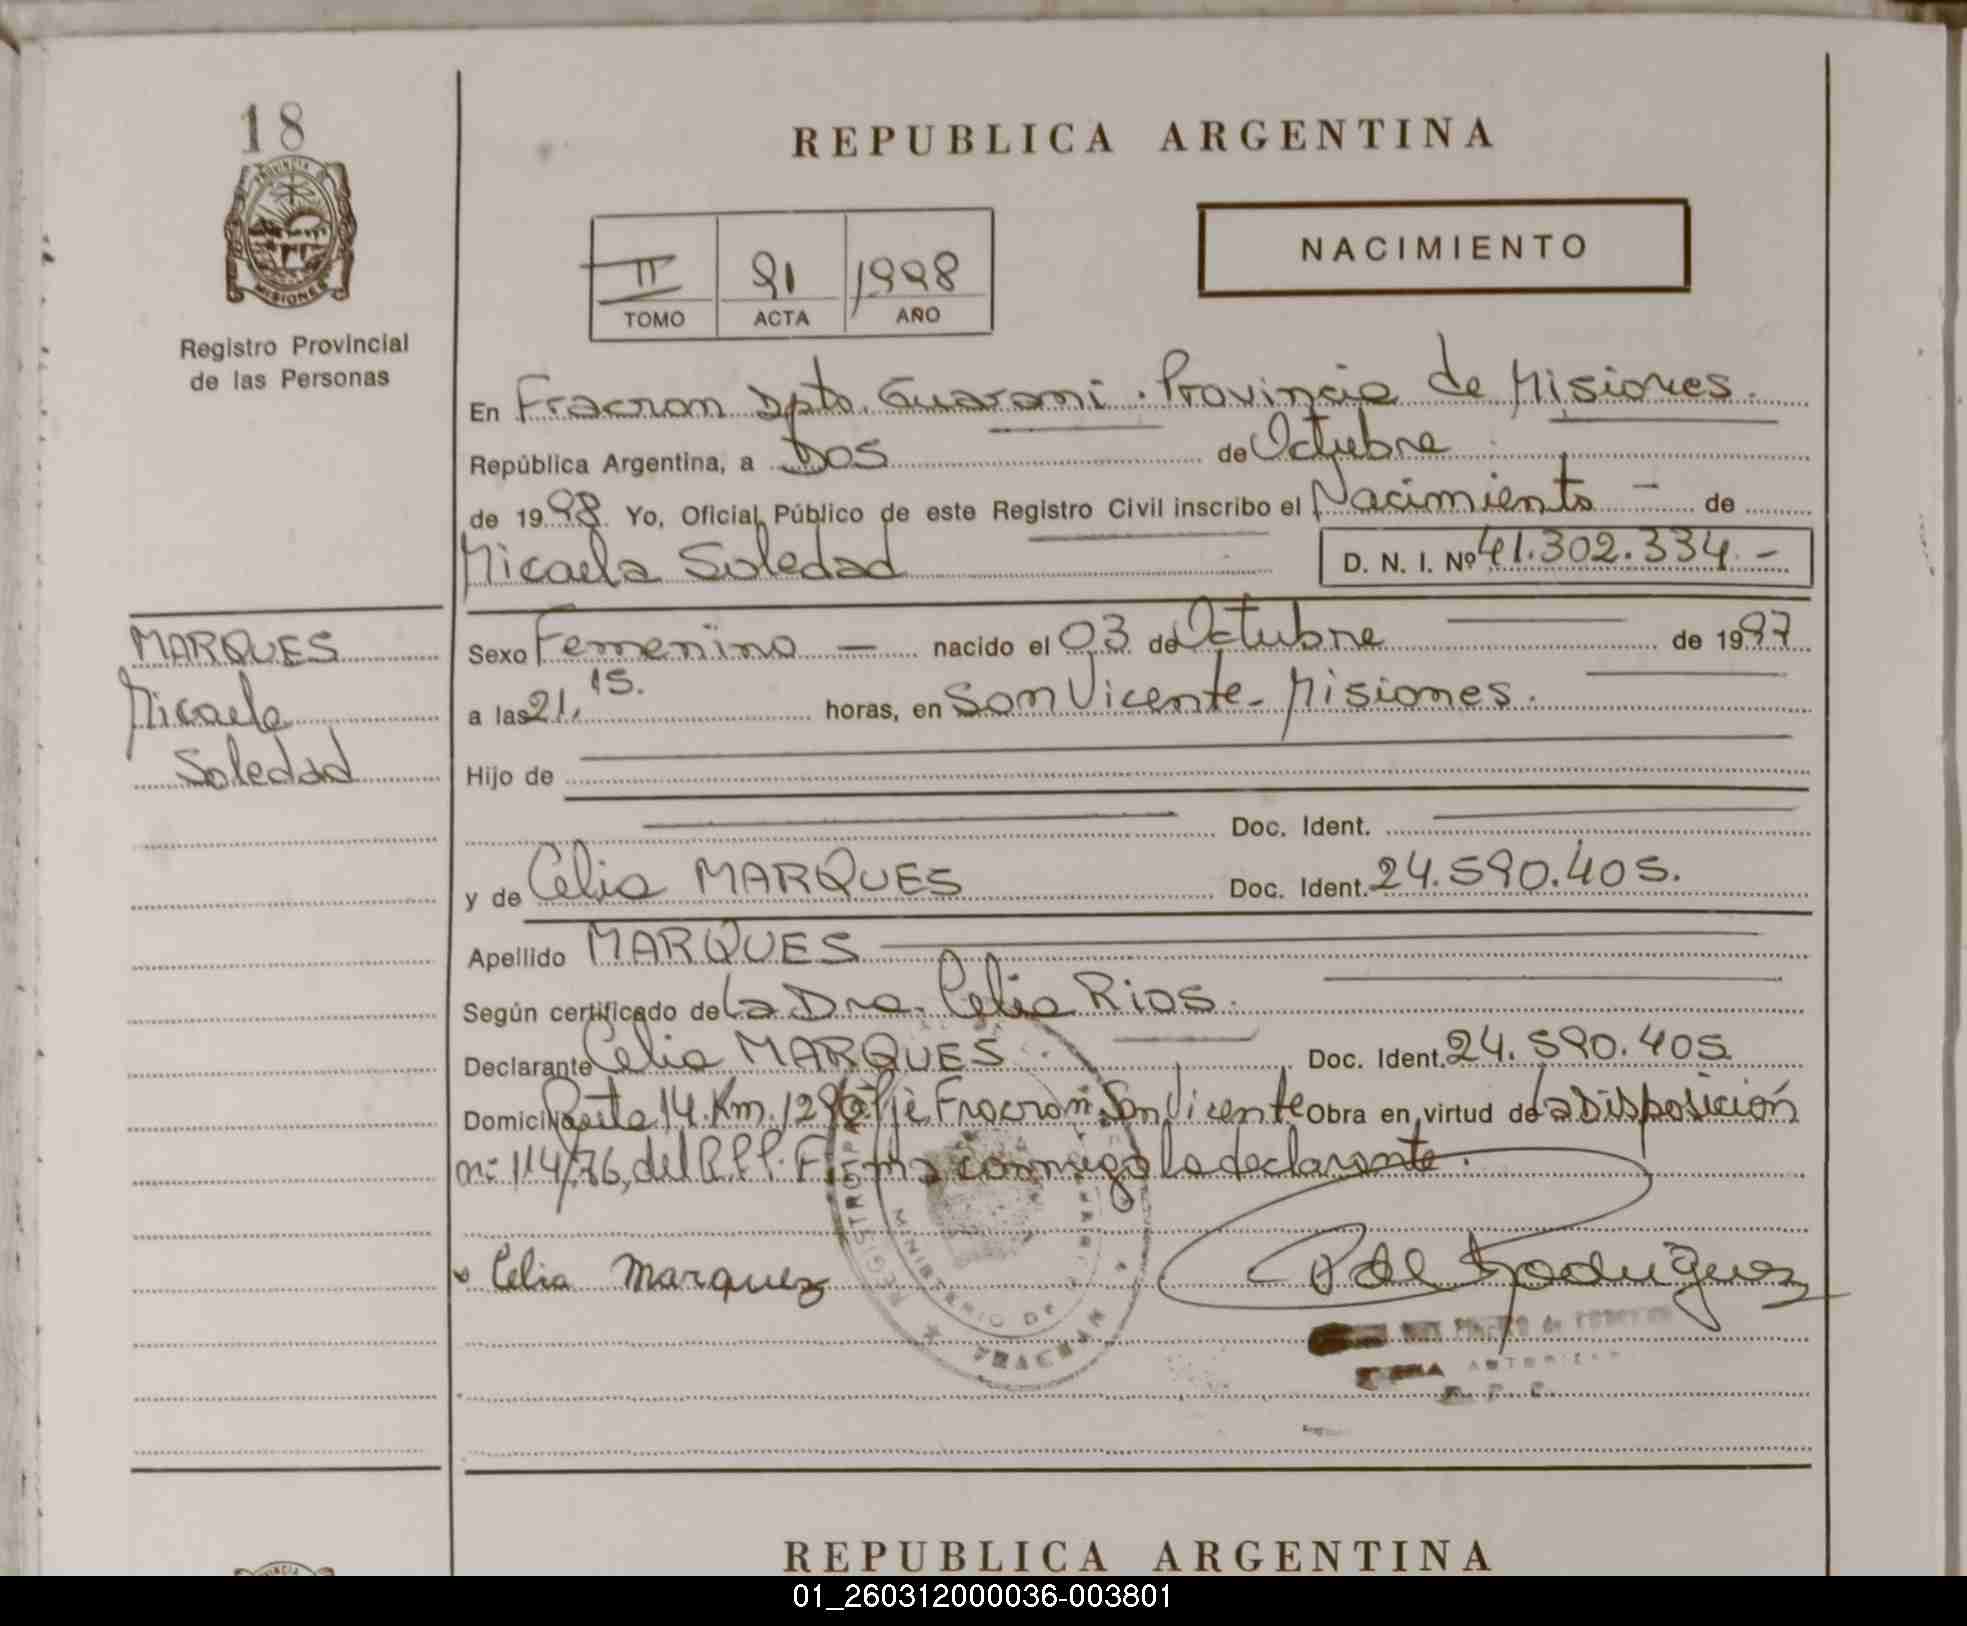 18
PROVINCIA DE
MISIONES
Registro Provincial
de las Personas
REPUBLICA ARGENTINA
NACIMIENTO
II 91 1998
TOMO ACTA AÑO
En Fracran Dpto. Guarani. Provincia de Misiones.
República Argentina, a Dos de Octubre
de 1998 Yo, Oficial Público de este Registro Civil inscribo el Nacimiento - de
Micaela Soledad D. N. I. Nº 41.302.334.-
MARQUES
Micaela
Soledad
Sexo Femenino - nacido el 03 de Octubre de 1997
a las 21,15. horas, en San Vicente - Misiones.
Hijo de
Doc. Ident.
y de Celia MARQUES Doc. Ident. 24.590.405.
Apellido MARQUES
Según certificado de La Dra. Celia Rios.
Declarante Celia MARQUES Doc. Ident. 24.590.405
Domicilio Ruta 14. Km. Pje Fracran. San Vicente Obra en virtud de la Disposición
nº 114/76, del R.P.P. Firma conmigo la declarante.
Celia Marquez
Rodriguez
REGISTRO
MINISTERIO DE
FRACRAN
REPUBLICA ARGENTINA
01_260312000036-003801